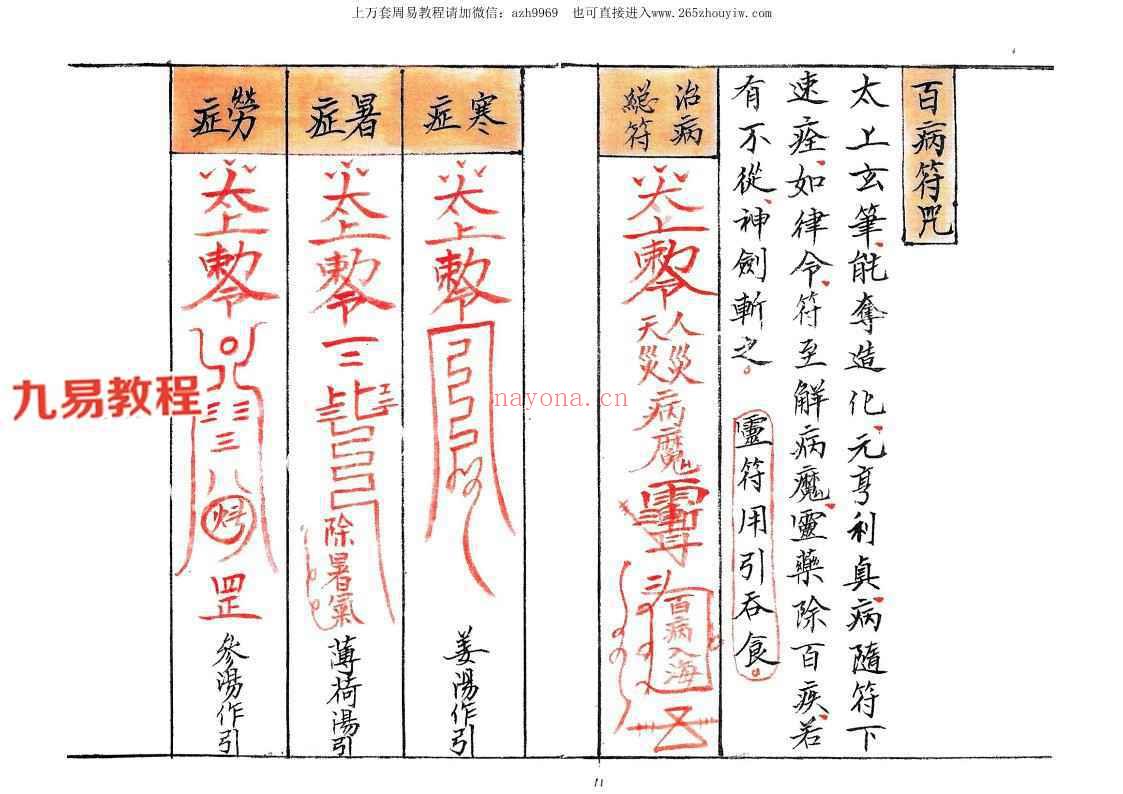 上万套周易教程请加微信：azh9969　也可直接进入www.265zhouyiw.com
百病符咒
太上玄筆能奪造化元亨利貞病隨符下
速痊如律令符至解病魔靈藥除百疾若
有不從神劍斬之。
靈符用引吞食。
治病
總符
太上敕令
人災
天災
病魔
百病入海
寒症
太上敕令
姜湯作引
暑症
太上敕令
除暑氣
薄荷湯引
勞症
太上敕令
罡
參湯作引
九易教程
nayona.cn
11